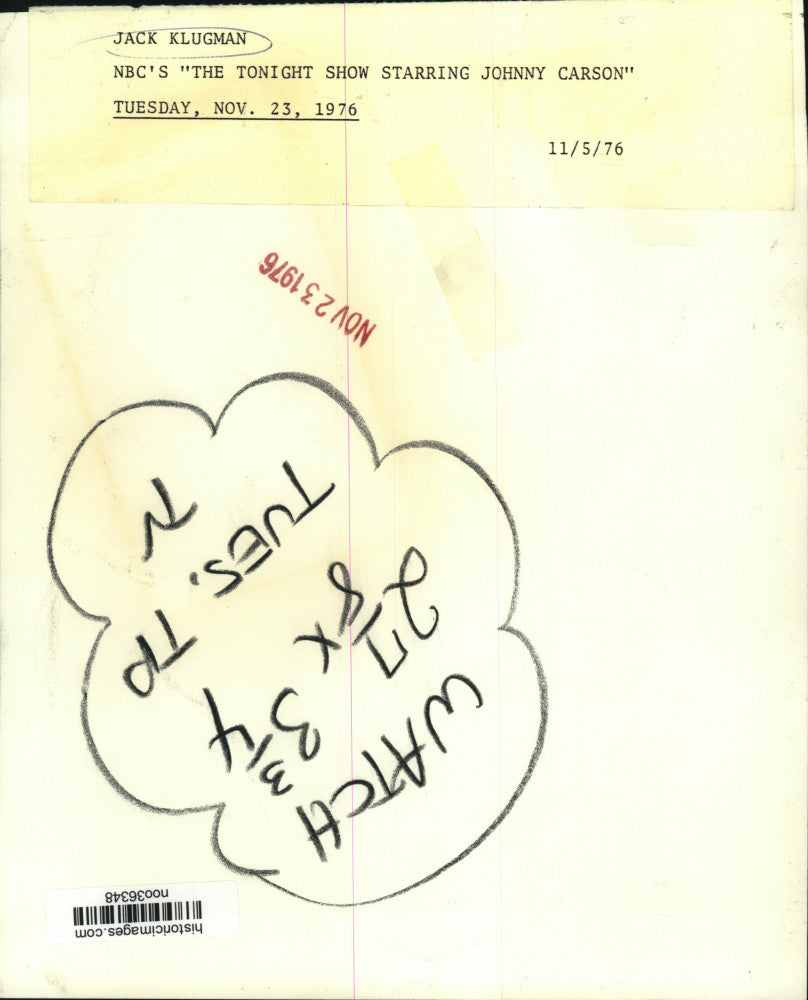 JACK KLUGMAN
NBC'S "THE TONIGHT SHOW STARRING JOHNNY CARSON"
TUESDAY, NOV. 23, 1976
11/5/76
NOV 23 1976
TUES. TV
2 7/8 X
3 3/4 TD
WATCH
historicimages.com
noo36348